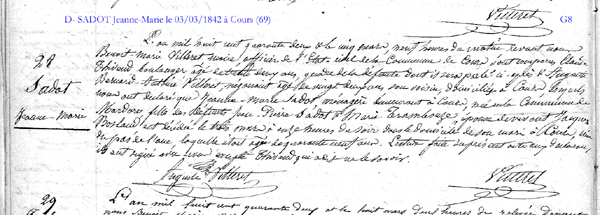 D- SADOT Jeanne-Marie le 03/03/1842 à Cours (69) G8
Villeret
28
Sadot
Jeanne-Marie
L'an mil huit cent quarante deux & le cinq mars, neuf heures du matin devant nous
Benoit Marie Villeret maire, officier de l'Etat civil de la Commune de Cours sont comparus Claude
boulanger âgé de trente deux ans, gendre de la défunte dont il sera parlé ci après & Auguste
Bernard Villeret, négociant âgé de vingt deux ans son voisin, domiciliés à Cours, lesquels
nous ont déclaré que Jeanne Marie Sadot ménagère demeurant à Cours, née en la Commune de
fille des défunts Pierre Sadot & Marie épouse de vivant Jacques
est décédée le trois mars à onze heures du soir au domicile de son mari à Cours, lieu
du pas de l'ane, laquelle était âgée de quarante neuf ans. Lecture faite du présent acte aux déclarans,
ils ont signé avec nous excepté qui a dit ne le savoir.
Auguste Villeret
Villeret
29
L'an mil huit cent quarante deux et le huit mars deux heures de relevée devant